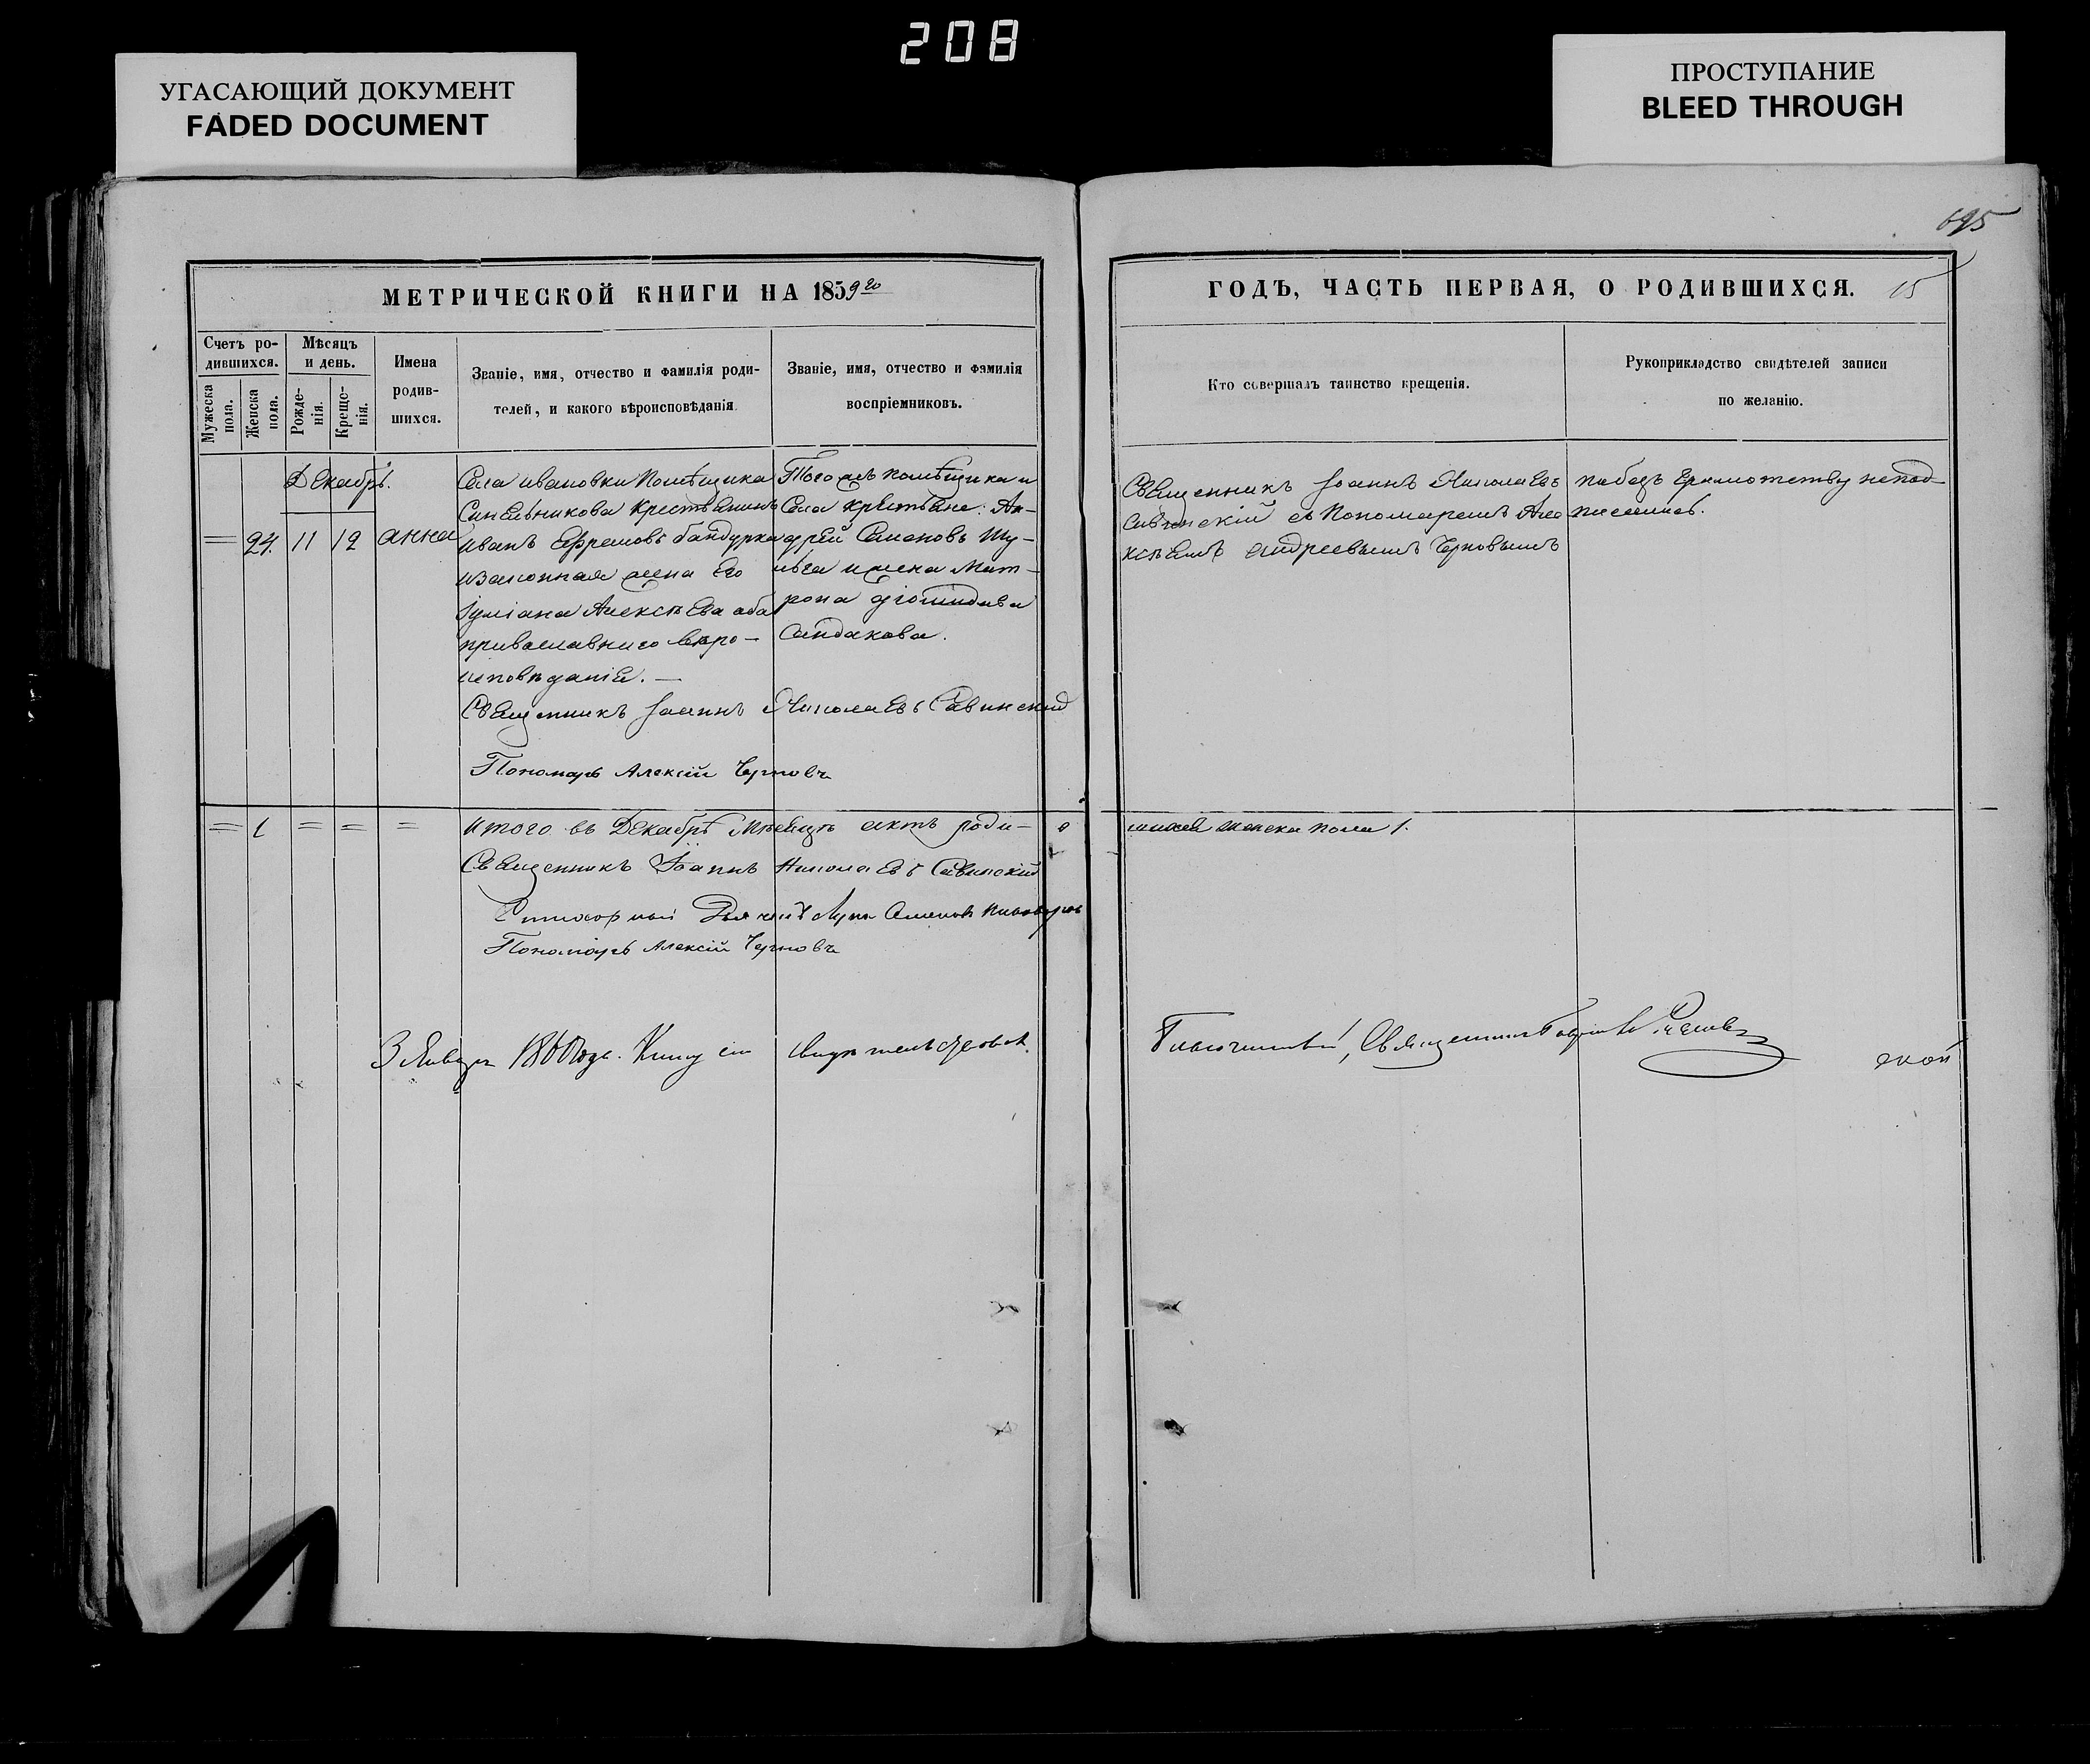 208
УГАСАЮЩИЙ ДОКУМЕНТ
FADED DOCUMENT
ПРОСТУПАНИЕ
BLEED THROUGH
695
МЕТРИЧЕСКОЙ КНИГИ НА 1859го
ГОДЪ, ЧАСТЬ ПЕРВАЯ, О РОДИВШИХСЯ.
15
Счетъ ро-
дившихся.
Мужеска пола.
Женска пола.
Мѣсяцъ
и день.
Рожде-
нія.
Креще-
нія.
Имена
родив-
шихся.
Званіе, имя, отчество и фамилія роди-
телей, и какого вѣроисповѣданія
Званіе, имя, отчество и фамилія
воспріемниковъ.
Кто совершалъ таинство крещенія.
Рукоприкладство свидѣтелей записи
по желанію.
Декабрь.
24. 11 12 анна
Села ивановки Помѣщика
Синельникова Крестьянинъ
иванъ Ефремовъ бандурка
изаконная жена его
Іуліана Алексѣева оба
православнаго вѣро-
исповѣданія. —
Священникъ Іоаннъ Николаевъ Савинскій
Пономарь Алексій Черновъ
Тогожъ помѣщика и
Села крестьяне: Ан-
дрей Семеновъ Шу-
и жена Мат-
рона
Сандакова.
Священникъ Іоаннъ Николаевъ
Савинскій съ Пономаремъ Але
ксѣемъ андреевымъ Черновымъ
побезъ Грамотству непод-
писались.
= 1 = = =
итого въ Декабрѣ Мѣсяцѣ роди-
шихся женска пола 1.
Священникъ Іоаннъ Николаевъ Савинскій
Дьячекъ Лука Семеновъ
Пономарь Алексій Черновъ
3 Января 1860 года. Книгу сію свидѣтельствовалъ
Благочинный, Священникъ